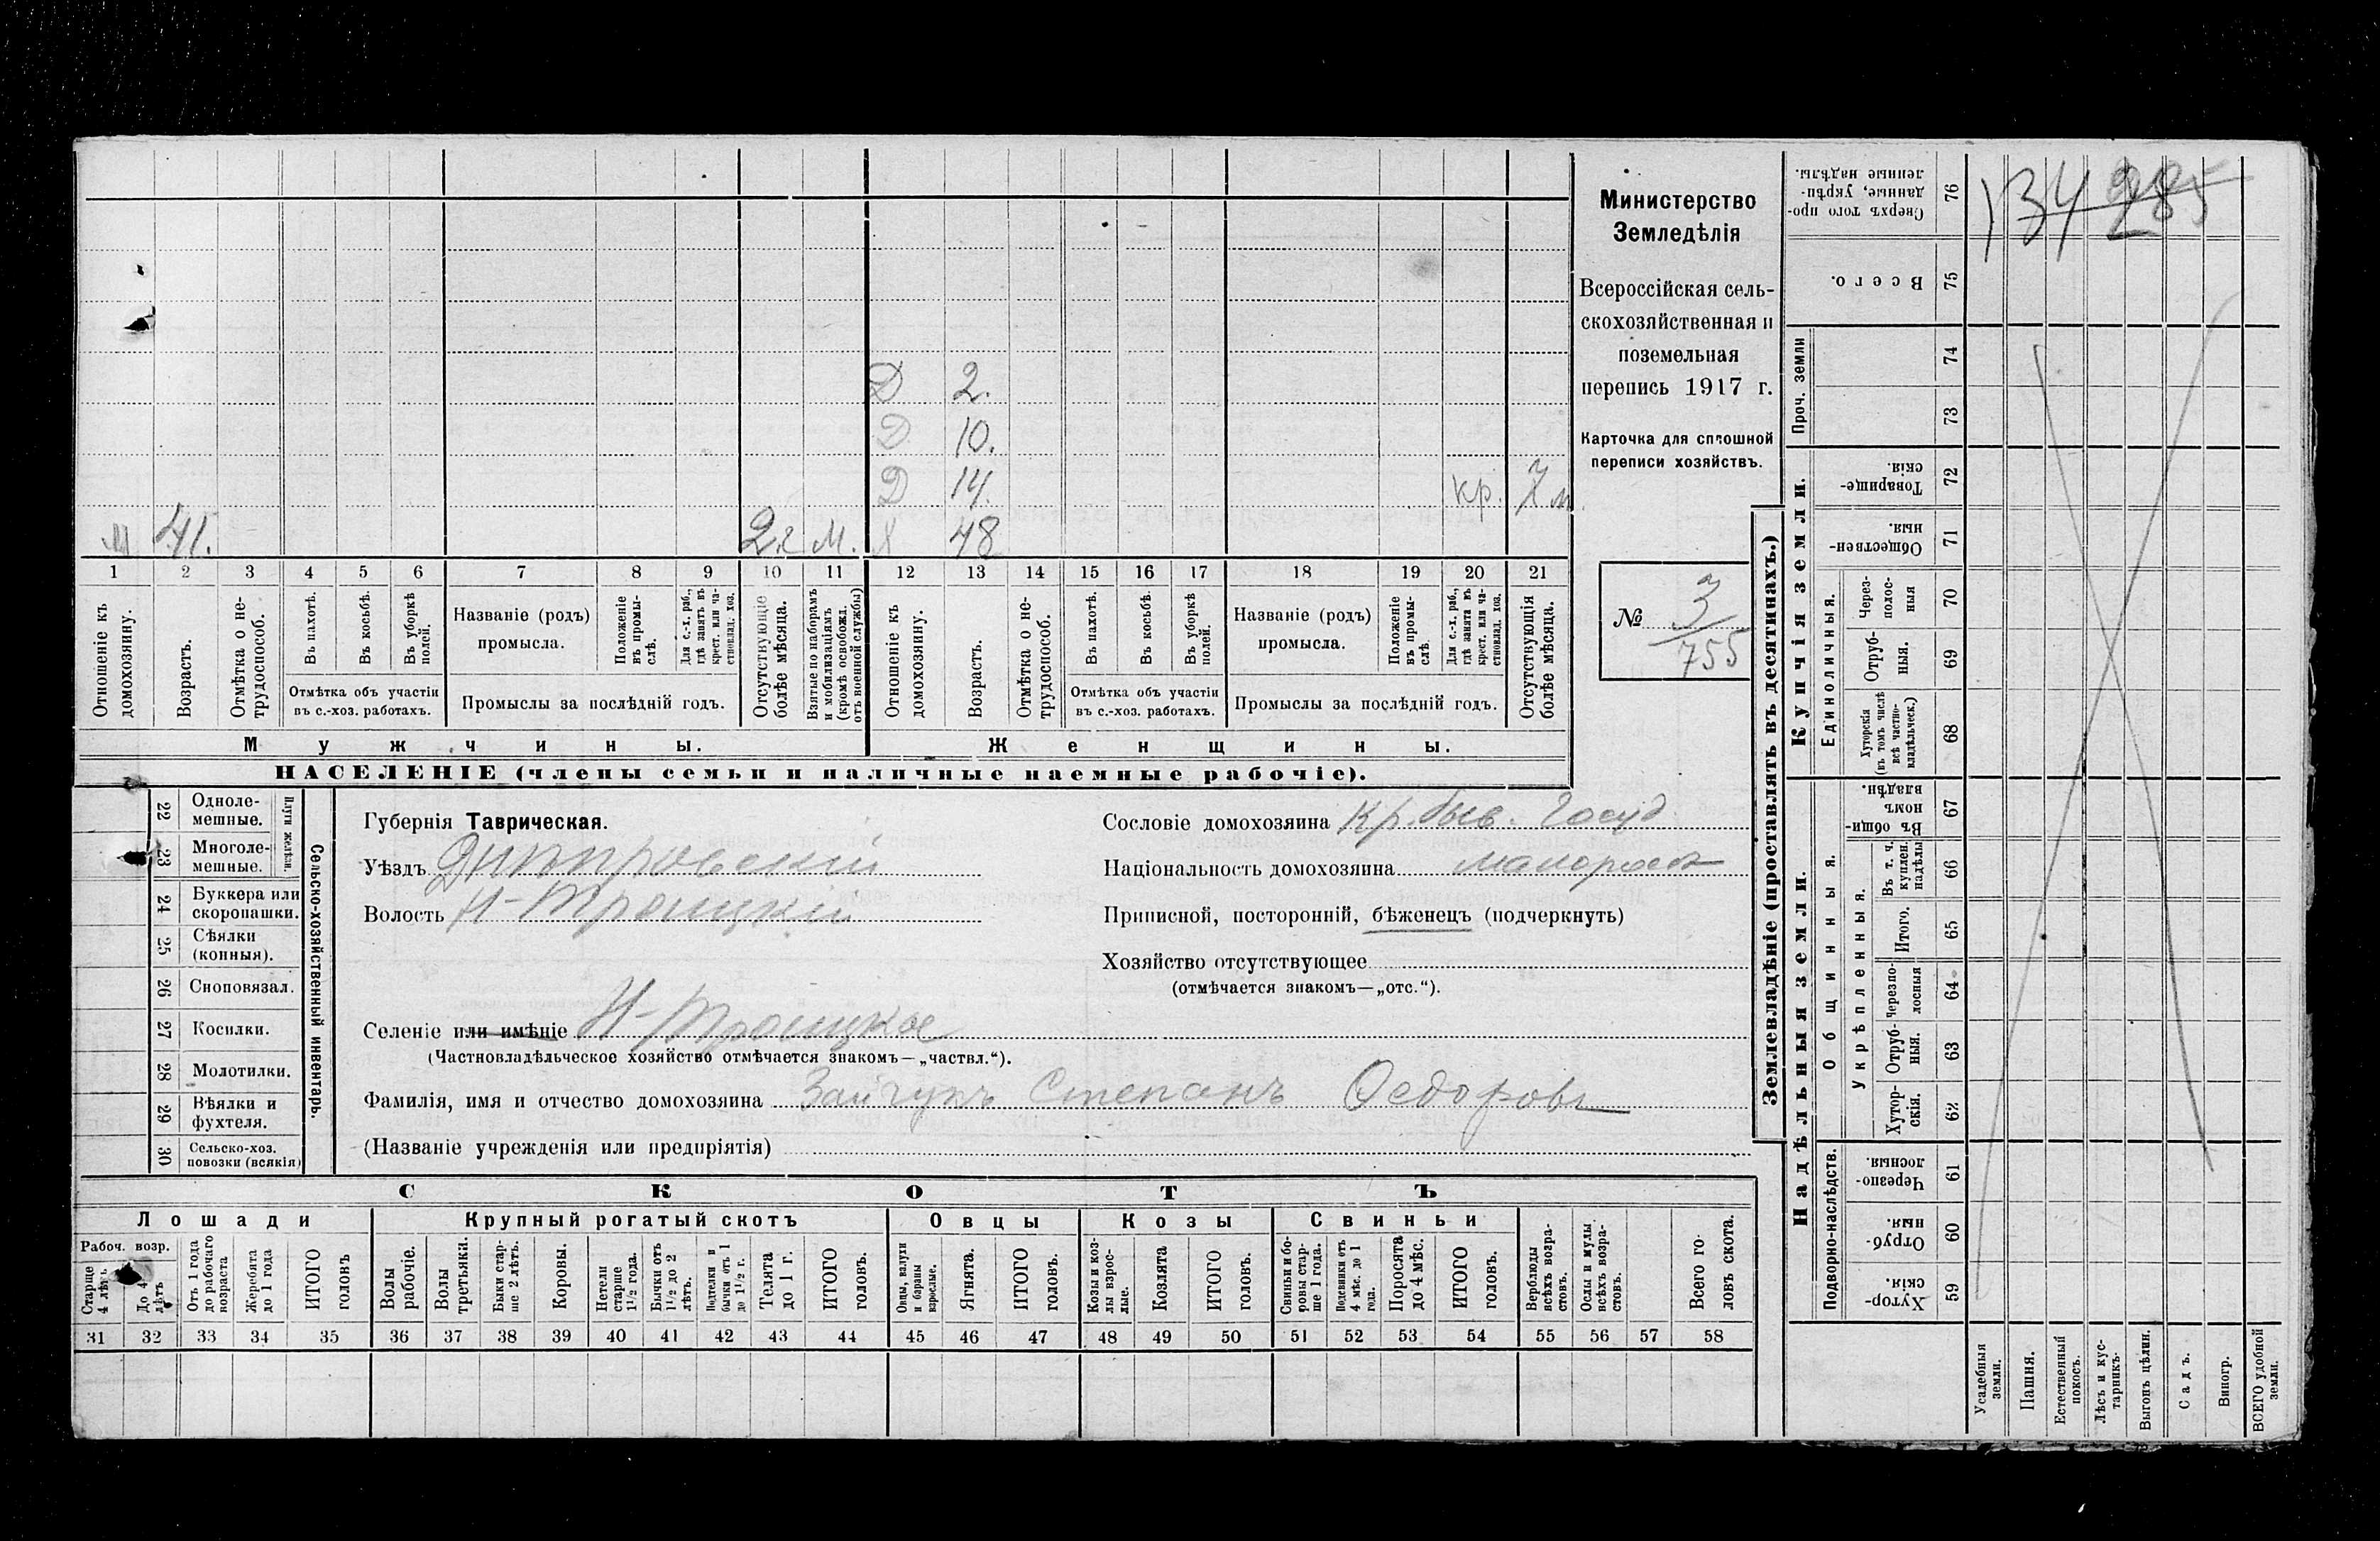 Министерство
Земледѣлія
Всероссійская сель-
скохозяйственная и
поземельная
перепись 1917 г.
Карточка для сплошной
переписи хозяйствъ.
№ 3
755
Д 2.
Д 10.
Д 14. кр.
41. 2 г. М. 48
1 2 3 4 5 6 7 8 9 10 11 12 13 14 15 16 17 18 19 20 21
Отношеніе къ домохозяину.
Возрастъ.
Отмѣтка о не-трудоспособ.
Въ пахотѣ.
Въ косьбѣ.
Въ уборкѣ полей.
Отмѣтка объ участіи
въ с.-хоз. работахъ.
Названіе (родъ)
промысла.
Положеніе въ промы-слѣ.
Для с.-х. раб., гдѣ занятъ въ крест. или ча-стновлад. хоз.
Промыслы за послѣдній годъ.
Отсутствующіе болѣе мѣсяца.
Взятые по наборамъ и мобилизаціямъ (кромѣ освобожд. отъ военной службы)
Отношеніе къ домохозяину.
Возрастъ.
Отмѣтка о не-трудоспособ.
Въ пахотѣ.
Въ косьбѣ.
Въ уборкѣ полей.
Отмѣтка объ участіи
въ с.-хоз. работахъ.
Названіе (родъ)
промысла.
Положеніе въ промы-слѣ
Для с.-х. раб., гдѣ занята въ крест. или ча-стновлад. хоз.
Промыслы за послѣдній годъ.
Отсутствующія болѣе мѣсяца.
Мужчины. Женщины.
НАСЕЛЕНІЕ (члены семьи и наличные наемные рабочіе).
22 Одноле-мешные.
23 Многоле-мешные.
Плуги желѣзн.
24 Буккера или скоропашки.
25 Сѣялки (конныя).
26 Сноповязал.
27 Косилки.
28 Молотилки.
29 Вѣялки и фухтеля.
30 Сельско-хоз. повозки (всякія)
Сельско-хозяйственный инвентарь.
Губернія Таврическая.
Уѣздъ Днѣпровскій
Волость Н-Троицкій
Селеніе или имѣніе Н-Троицкое
(Частновладѣльческое хозяйство отмѣчается знакомъ—„частвл.“).
Фамилія, имя и отчество домохозяина Зайчукъ Степанъ Ѳедоровъ
(Названіе учрежденія или предпріятія)
Сословіе домохозяина Кр. быв. Госуд
Національность домохозяина малоросъ
Приписной, посторонній, бѣженецъ (подчеркнуть)
Хозяйство отсутствующее
(отмѣчается знакомъ—„отс.“).
СКОТЪ
Лошади
Рабоч. возр.
Старше 4 лѣтъ.
До 4 лѣтъ
Отъ 1 года до рабочаго возраста
Жеребята до 1 года
ИТОГО головъ
Крупный рогатый скотъ
Волы рабочіе.
Волы третьяки.
Быки стар-ше 2 лѣтъ.
Коровы.
Нетели старше 1½ года.
Бычки отъ 1½ до 2 лѣтъ.
Подтелки и бычки отъ 1 до 1½ г.
Телята до 1 г.
ИТОГО головъ.
Овцы
Овцы, валухи и бараны взрослые.
Ягнята.
ИТОГО головъ.
Козы
Козы и коз-лы взрос-лые.
Козлята
ИТОГО головъ.
Свиньи
Свиньи и бо-ровы стар-ше 1 года.
Подсвинки отъ 4 мѣс. до 1 года.
Поросята до 4 мѣс.
ИТОГО головъ.
Верблюды всѣхъ возра-стовъ.
Ослы и мулы всѣхъ возра-стовъ.
Всего го-ловъ скота.
31 32 33 34 35 36 37 38 39 40 41 42 43 44 45 46 47 48 49 50 51 52 53 54 55 56 57 58
Землевладѣніе (проставлять въ десятинахъ.)
134 285
76 Сверхъ того про-данные, укрѣп-ленные надѣлы.
75 Всего.
Проч. земли
74
73
Купчія земли.
72 Товарище-скія.
71 Обществен-ныя.
Единоличныя.
70 Через-полос-ныя
69 Отруб-ныя.
68 Хуторскія (въ томъ числѣ всѣ частно-владѣльческ.)
Надѣльныя земли.
Общинныя.
67 Въ общи-номъ владѣн.
Укрѣпленныя.
66 Въ т. ч. куплен. надѣлы
65 Итого.
64 Черезпо-лосныя
63 Отруб-ныя.
62 Хутор-скія.
Подворно-наслѣдств.
61 Черезпо-лосныя.
60 Отруб-ныя.
59 Хутор-скія.
Усадебныя земли.
Пашня.
Естественный покосъ.
Лѣсъ и кус-тарникъ.
Выгонъ цѣлин.
Садъ.
Виногр.
ВСЕГО удобной земли.